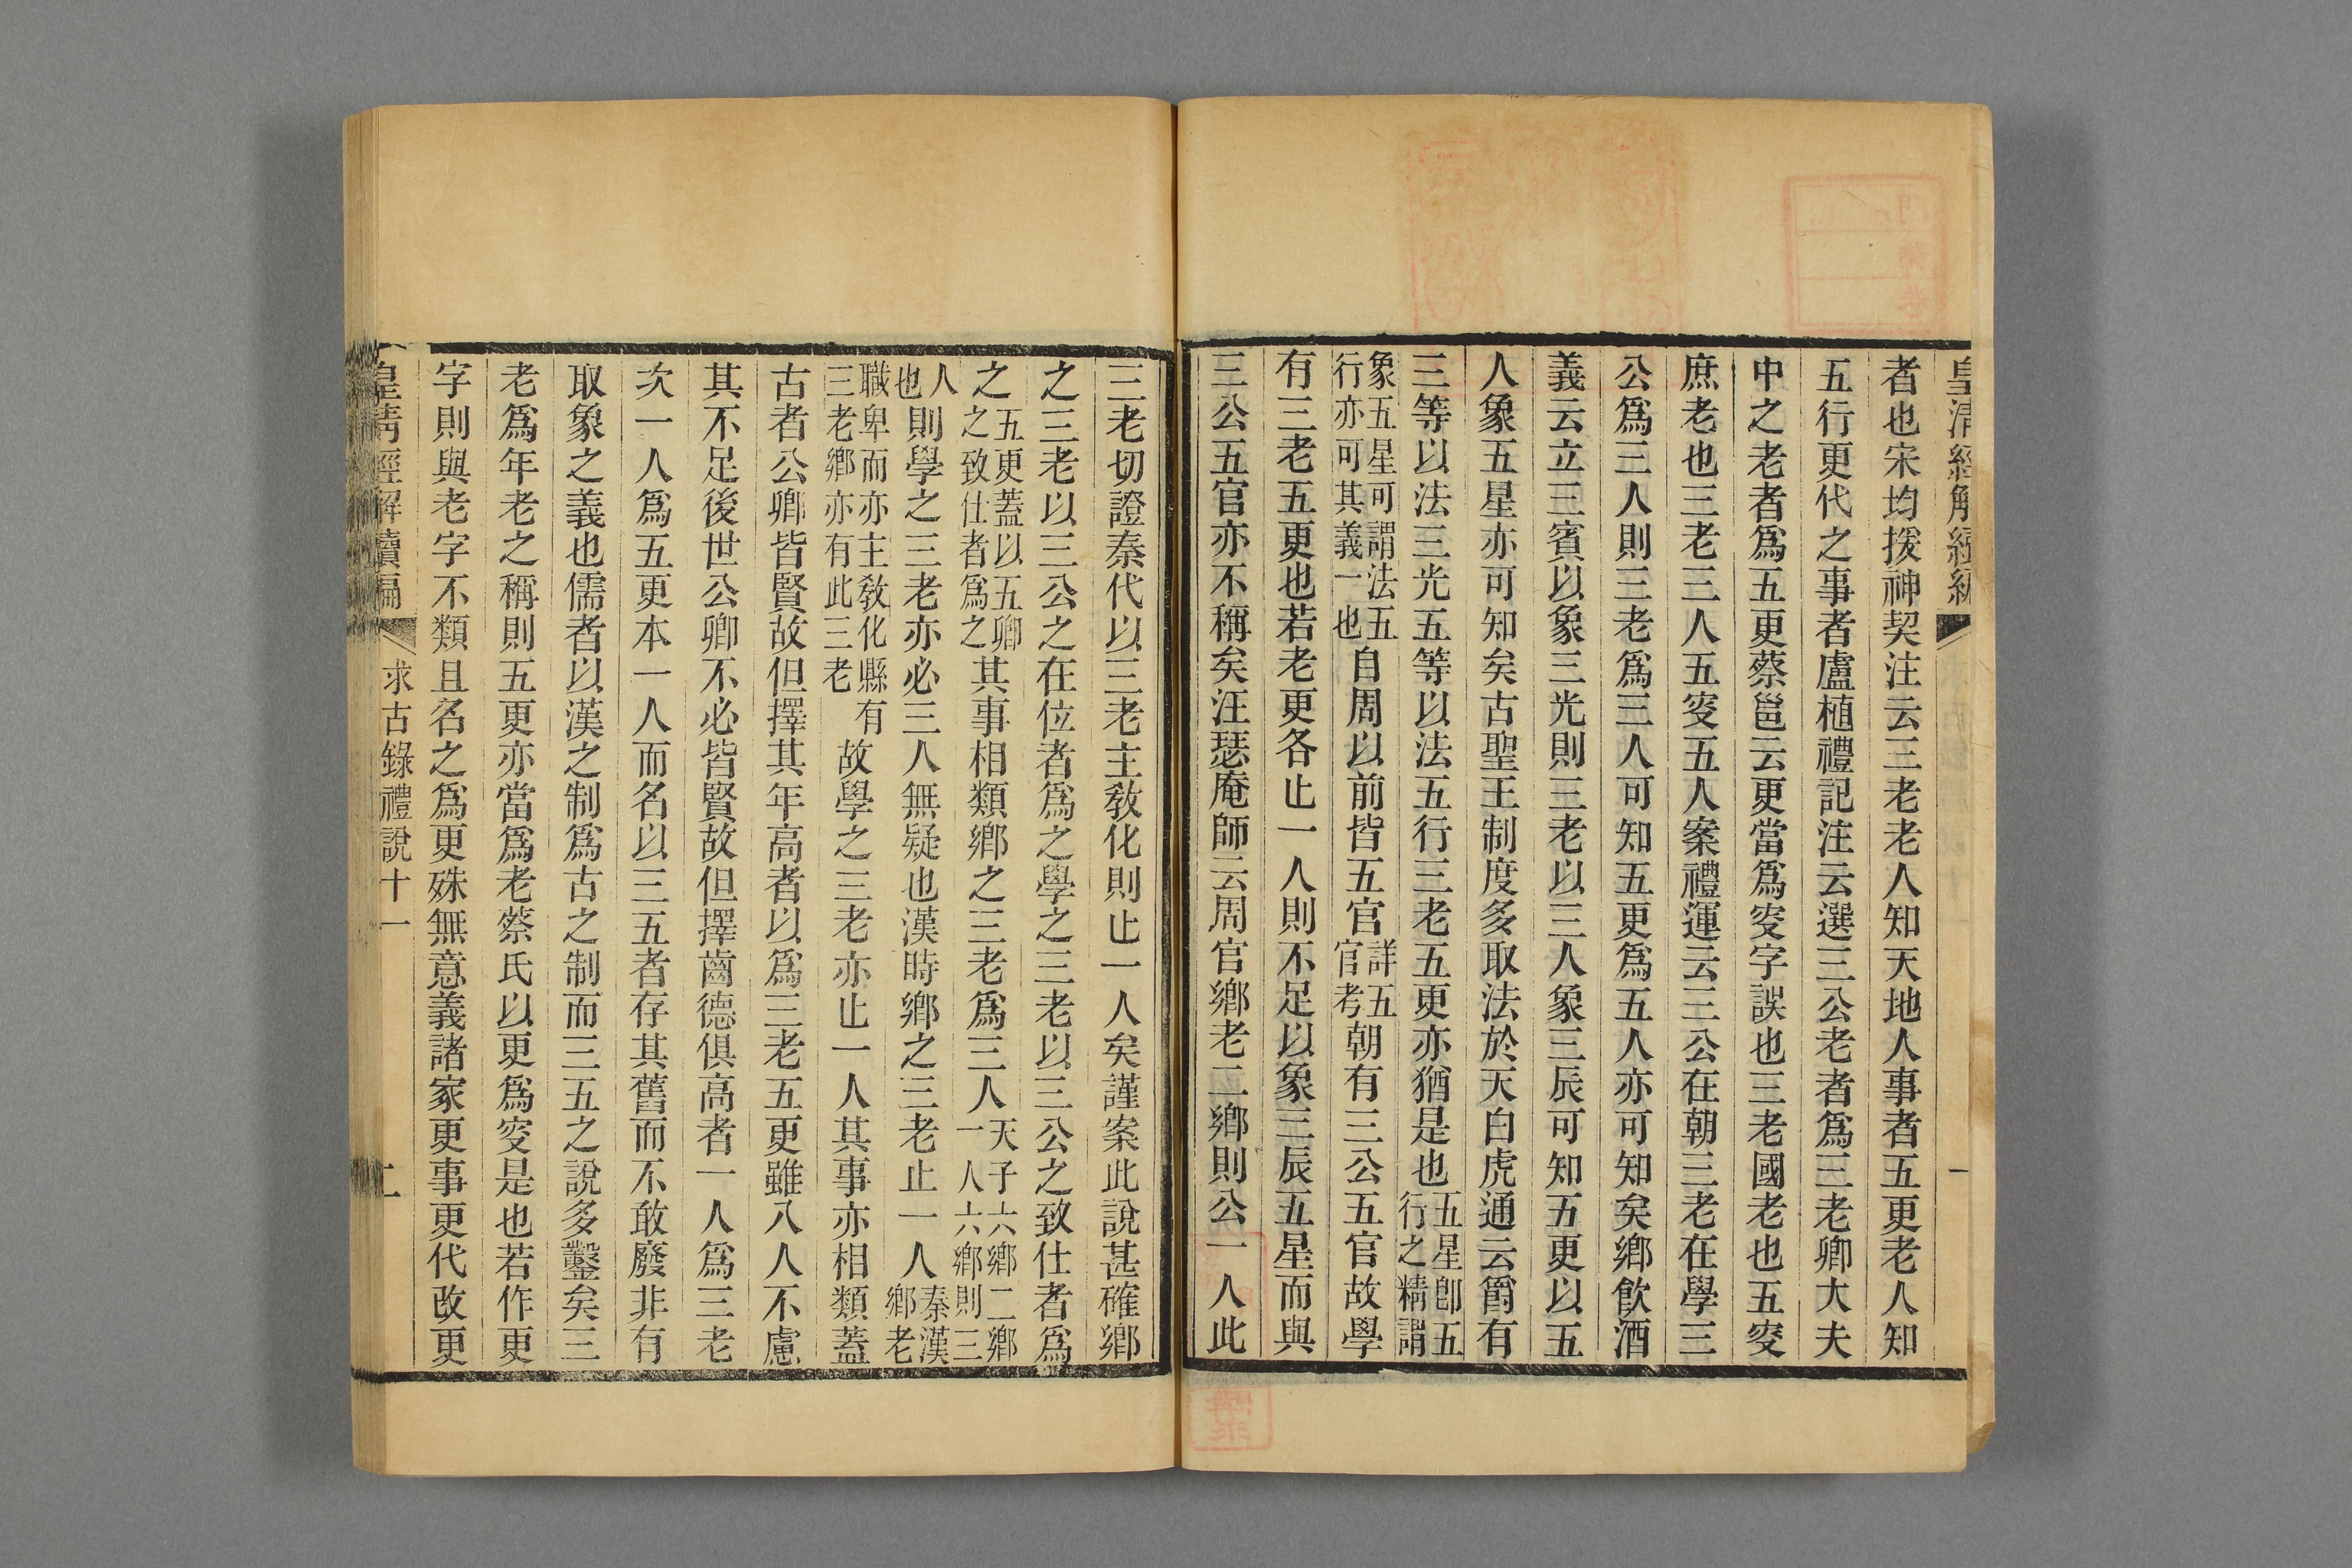 皇清經解續編
一
者也宋均援神契注云三老老人知天地人事者五更老人知
五行更代之事者盧植禮記注云選三公老者為三老卿大夫
中之老者為五更蔡邕云更當為叜字誤也三老國老也五叜
庶老也三老三人五叜五人案禮運云三公在朝三老在學三
公為三人則三老為三人可知五更為五人亦可知矣鄉飲酒
義云立三賓以象三光則三老以三人象三辰可知五更以五
人象五星亦可知矣古聖王制度多取法於天白虎通云爵有
三等以法三光五等以法五行三老五更亦猶是也五星卽五行之精謂
象五星可謂法五行亦可其義一也自周以前皆五官詳五官考朝有三公五官故學
有三老五更也若老更各止一人則不足以象三辰五星而與
三公五官亦不稱矣汪瑟庵師云周官鄉老二鄉則公一人此
三老切證秦代以三老主敎化則止一人矣謹案此說甚確鄉
之三老以三公之在位者為之學之三老以三公之致仕者為
之五更蓋以五卿之致仕者為之其事相類鄉之三老為三人天子六鄉二鄉一人六鄉則三
人也則學之三老亦必三人無疑也漢時鄉之三老止一人秦漢鄉老
職卑而亦主敎化縣有三老鄉亦有此三老故學之三老亦止一人其事亦相類蓋
古者公卿皆賢故但擇其年高者以為三老五更雖八人不慮
其不足後世公卿不必皆賢故但擇齒德俱高者一人為三老
次一人為五更本一人而名以三五者存其舊而不敢廢非有
取象之義也儒者以漢之制為古之制而三五之說多鑿矣三
老為年老之稱則五更亦當為老蔡氏以更為叜是也若作更
字則與老字不類且名之為更殊無意義諸家更事更代改更
皇清經解續編
求古錄禮說十一
二